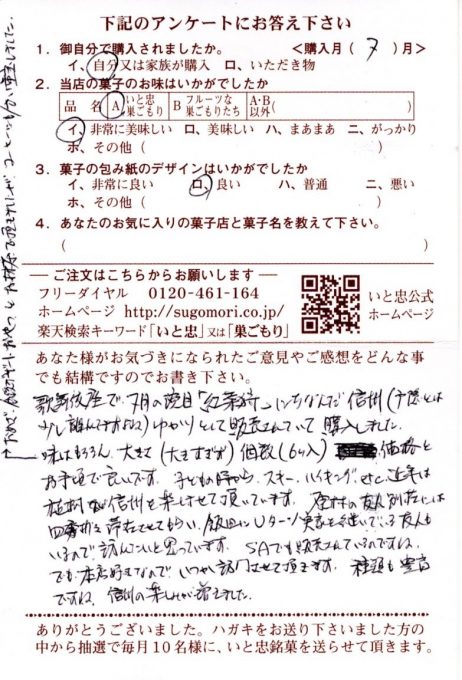 下記のアンケートにお答え下さい
1. 御自分で購入されましたか。 <購入月( 7 )月>
イ、自分又は家族が購入 ロ、いただき物
2. 当店の菓子のお味はいかがでしたか
品 名 A いと忠巣ごもり B フルーツな巣ごもりたち A・B以外( )
イ、非常に美味しい ロ、美味しい ハ、まあまあ ニ、がっかり
ホ、その他( )
3. 菓子の包み紙のデザインはいかがでしたか
イ、非常に良い ロ、良い ハ、普通 ニ、悪い
ホ、その他( )
4. あなたのお気に入りの菓子店と菓子名を教えて下さい。
( )
ご注文はこちらからお願いします
フリーダイヤル 0120-461-164
ホームページ http://sugomori.co.jp/
楽天検索キーワード「いと忠」又は「巣ごもり」
いと忠公式
ホームページ
あなた様がお気づきになられたご意見やご感想をどんな事
でも結構ですのでお書き下さい。
歌舞伎座で、7月の演目「紅葉狩」にちなんだ信州(戸隠とは
少し離れてますがね)ゆかりとして販売されていて購入しました。
味はもちろん、大きさ(大きすぎず)個数(6ヶ入)価格と
お手頃で良いです。子どもの時から、スキー、ハイキング、
信州を楽しませて頂いています。
四季折々滞在させてもらい、飯田にUターン 実家を継いでいる友人も
いるので訪れたいと思っています。SAでも販売されているのですね。
でも本店好きなので、いつか訪門させて頂きます。種類も豊富
ですね。信州の楽しみが増えました。
ありがとうございました。ハガキをお送り下さいました方の
中から抽選で毎月10名様に、いと忠銘菓を送らせて頂きます。